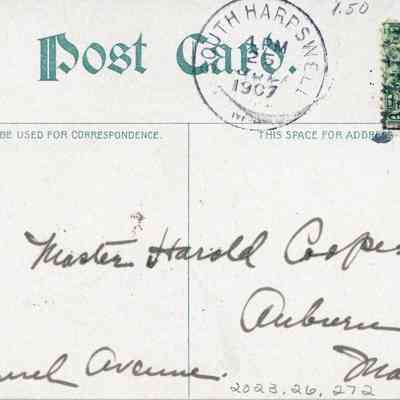 1.50
Post Card.
SOUTH HARPSWELL
4 PM
26
1907
BE USED FOR CORRESPONDENCE.
THIS SPACE FOR ADDRESS
Master Harold Cooper
Auburn
Avenue.
2023.26.272